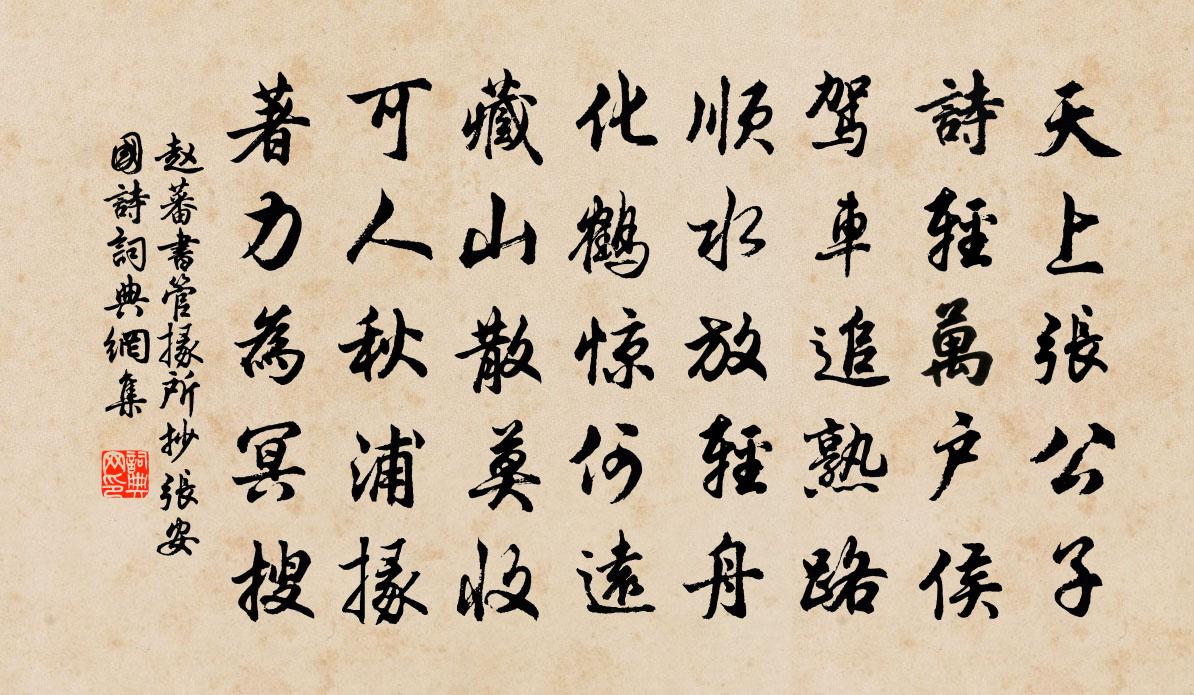 天上張公子
詩輕萬户侯
駕車追熟路
順水放輕舟
化鶴惊何遠
藏山散莫收
可人秋浦掾
著力為冥搜
赵蕃書管掾所抄張安
國詩詞典網集
詞典网印